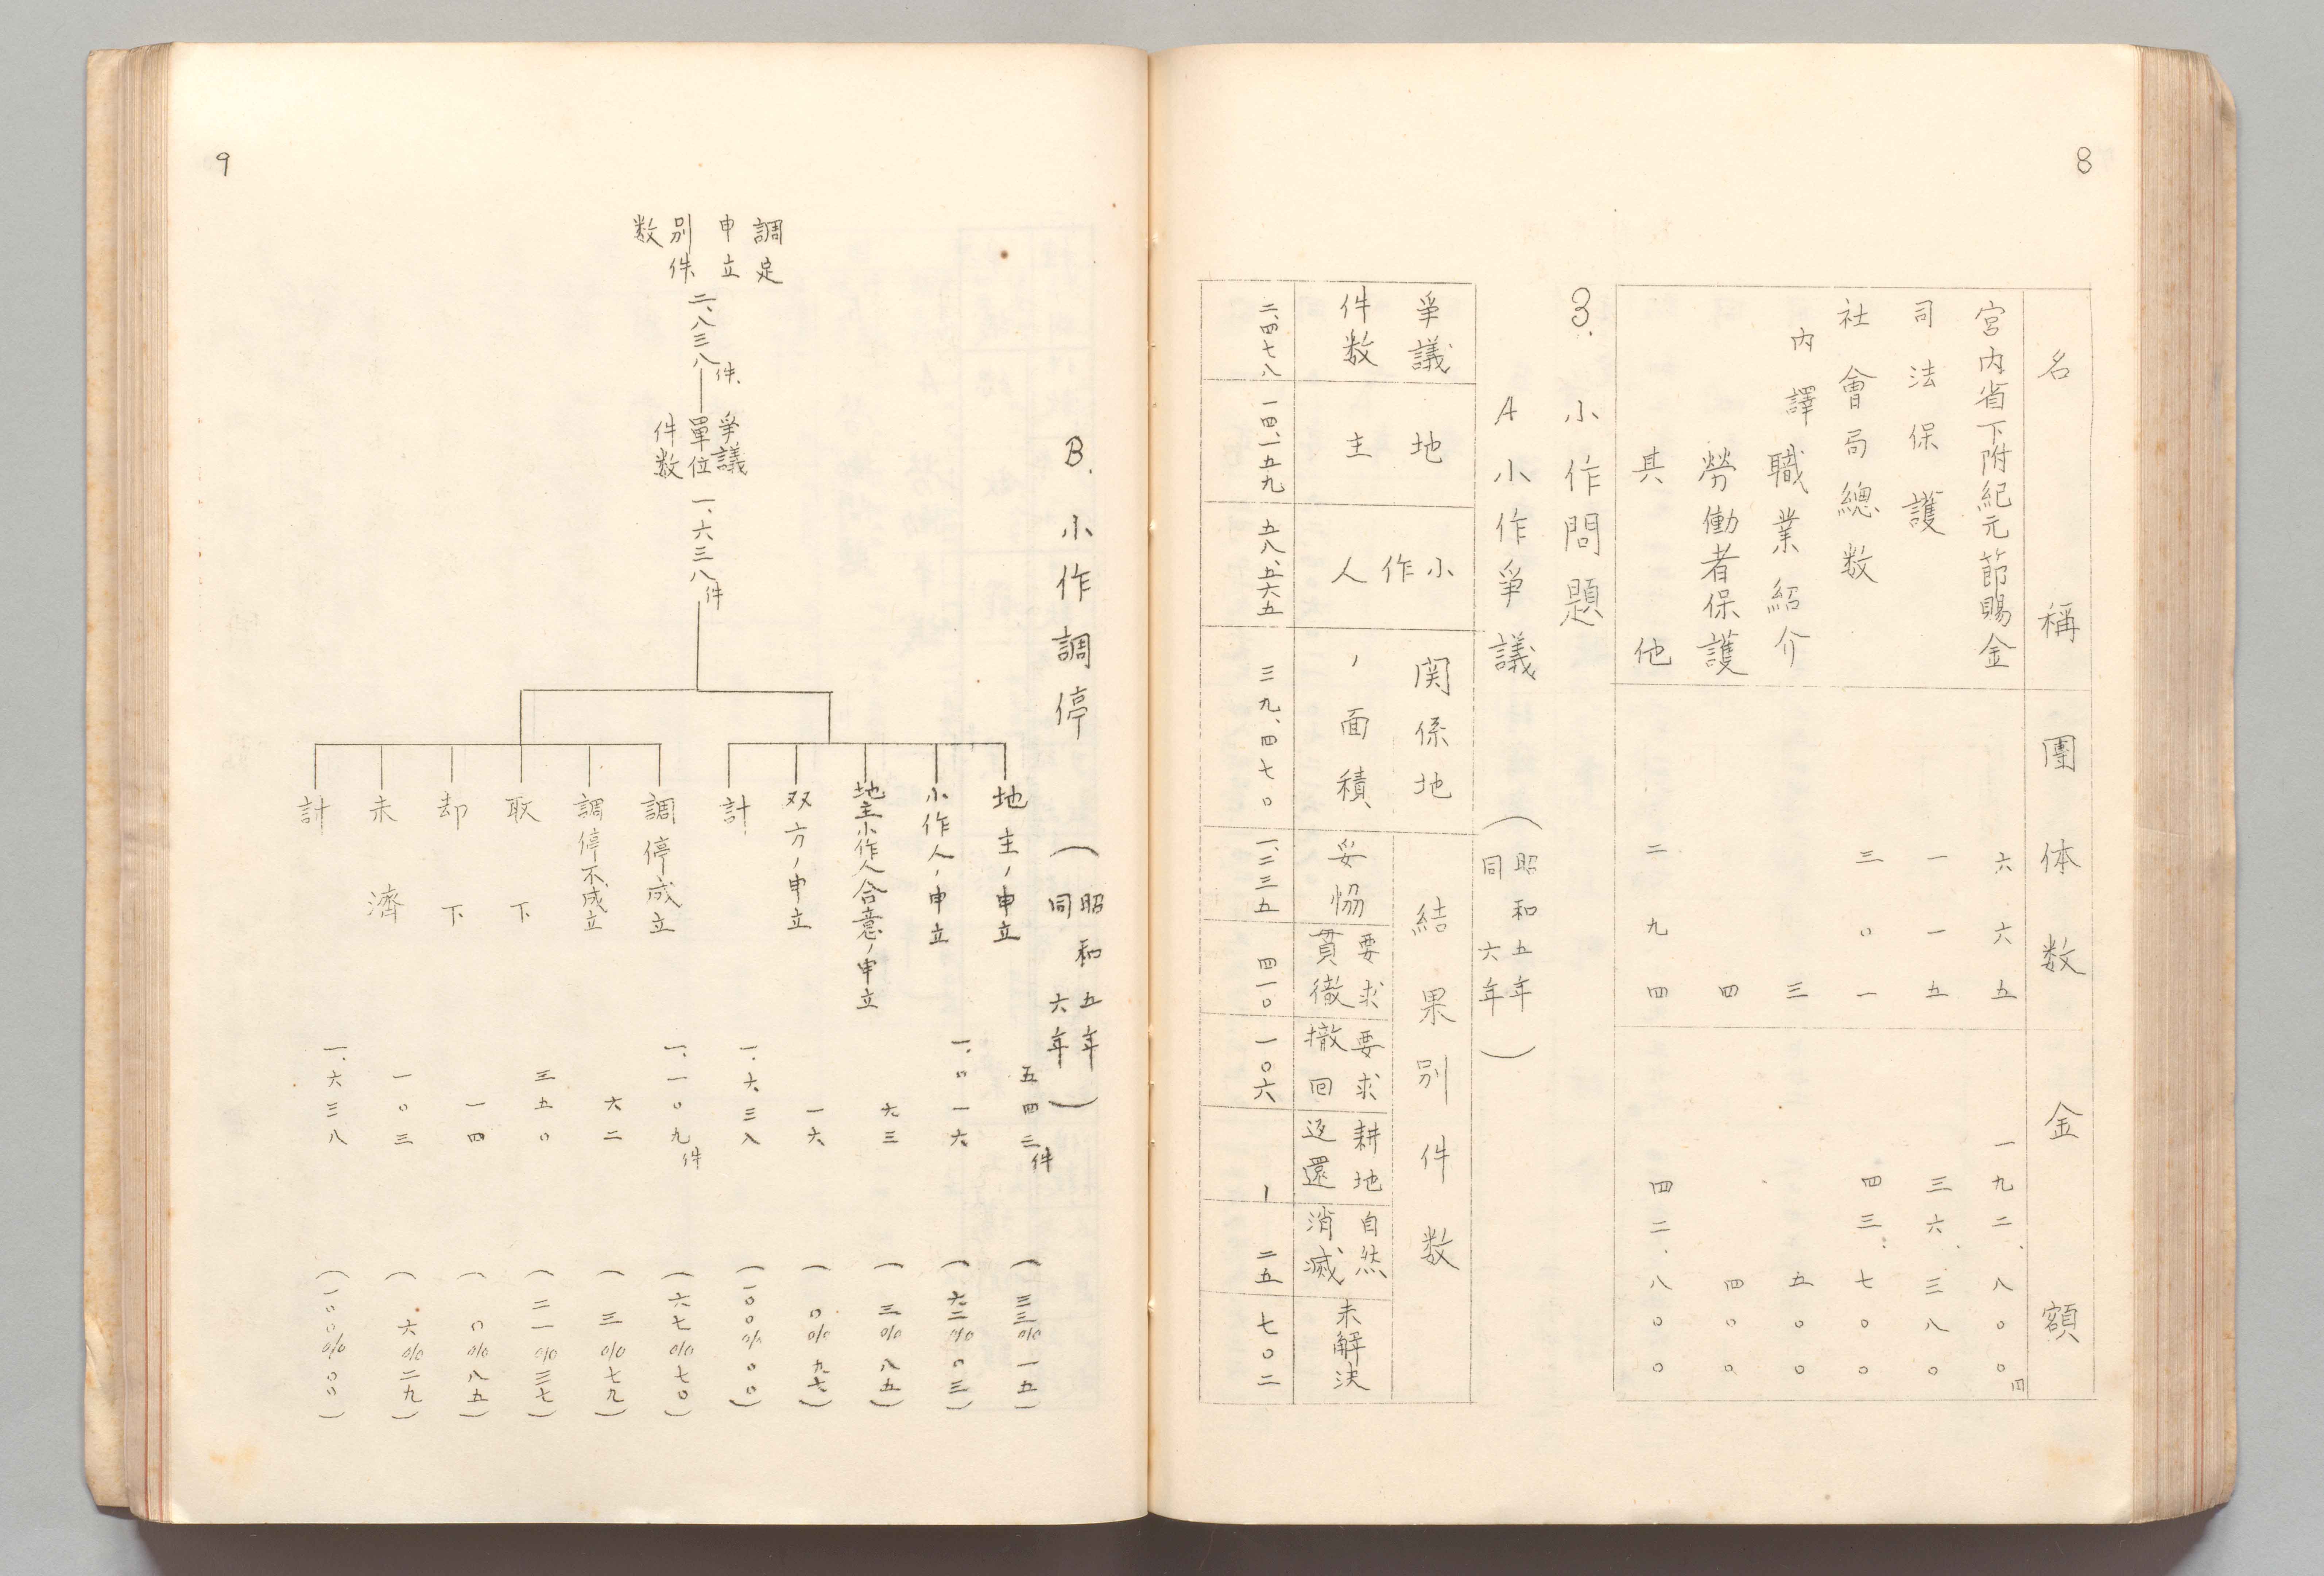 8
名稱 團体数 金額
宮内省下附紀元節賜金 六六五 一九二、八〇〇円
司法保護 一一五 三六、三八〇
社會局總数 三〇一 四三、七〇〇
内譯 職業紹介 三 五〇〇
勞働者保護 四 四〇〇
其他 二九四 四二、八〇〇
3. 小作問題
A 小作爭議(昭和五年 同六年)
爭議件数 二、四七八
地主 一四、一五九
小作人 五八、五六五
関係地ノ面積 三九、四七〇
結果別件数
妥恊 一、二三五
要求貫徹 四一〇
要求撤回 一〇六
耕地返還 ー
自然消滅 二五
未解決 七〇二
9
B. 小作調停(昭和五年 同六年)
調定申立別件数 二、八三八件
爭議單位件数 一、六三八件
地主ノ申立 五四三件 (三三%一五)
小作人ノ申立 一、〇一六 (六二%〇三)
地主小作人合意ノ申立 六三 (三%八五)
双方ノ申立 一六 (〇%九七)
計 一、六三八 (一〇〇%〇〇)
調停成立 一、一〇九件 (六七%七〇)
調停不成立 六二 (三%七九)
取下 三五〇 (二一%三七)
却下 一四 (〇%八五)
未濟 一〇三 (六%二九)
計 一、六三八 (一〇〇%〇〇)